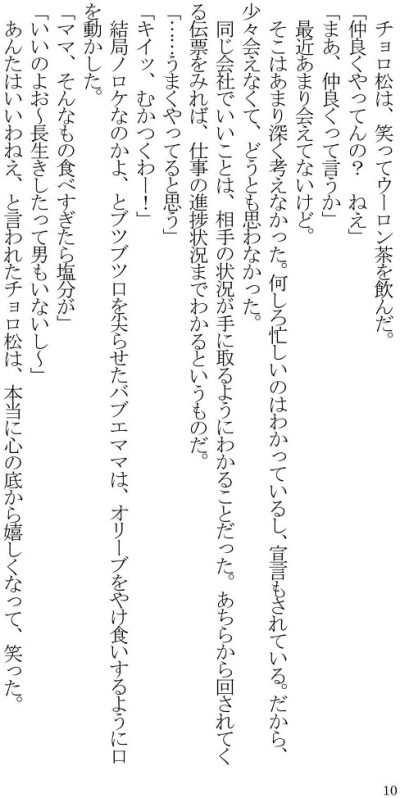 チョロ松は、笑ってウーロン茶を飲んだ。
「仲良くやってんの？　ねえ」
「まあ、仲良くって言うか」
　最近あまり会えてないけど。
　そこはあまり深く考えなかった。何しろ忙しいのはわかっているし、宣言もされている。だから、
少々会えなくて、どうとも思わなかった。
　同じ会社でいいことは、相手の状況が手に取るようにわかることだった。あちらから回されてく
る伝票をみれば、仕事の進捗状況までわかるというものだ。
「……うまくやってると思う」
「キイッ、むかつくわー！」
　結局ノロケなのかよ、とブツブツ口を尖らせたバブエママは、オリーブをやけ食いするように口
を動かした。
「ママ、そんなもの食べすぎたら塩分が」
「いいのよお～長生きしたって男もいないし～」
　あんたはいいわねえ、と言われたチョロ松は、本当に心の底から嬉しくなって、笑った。
10